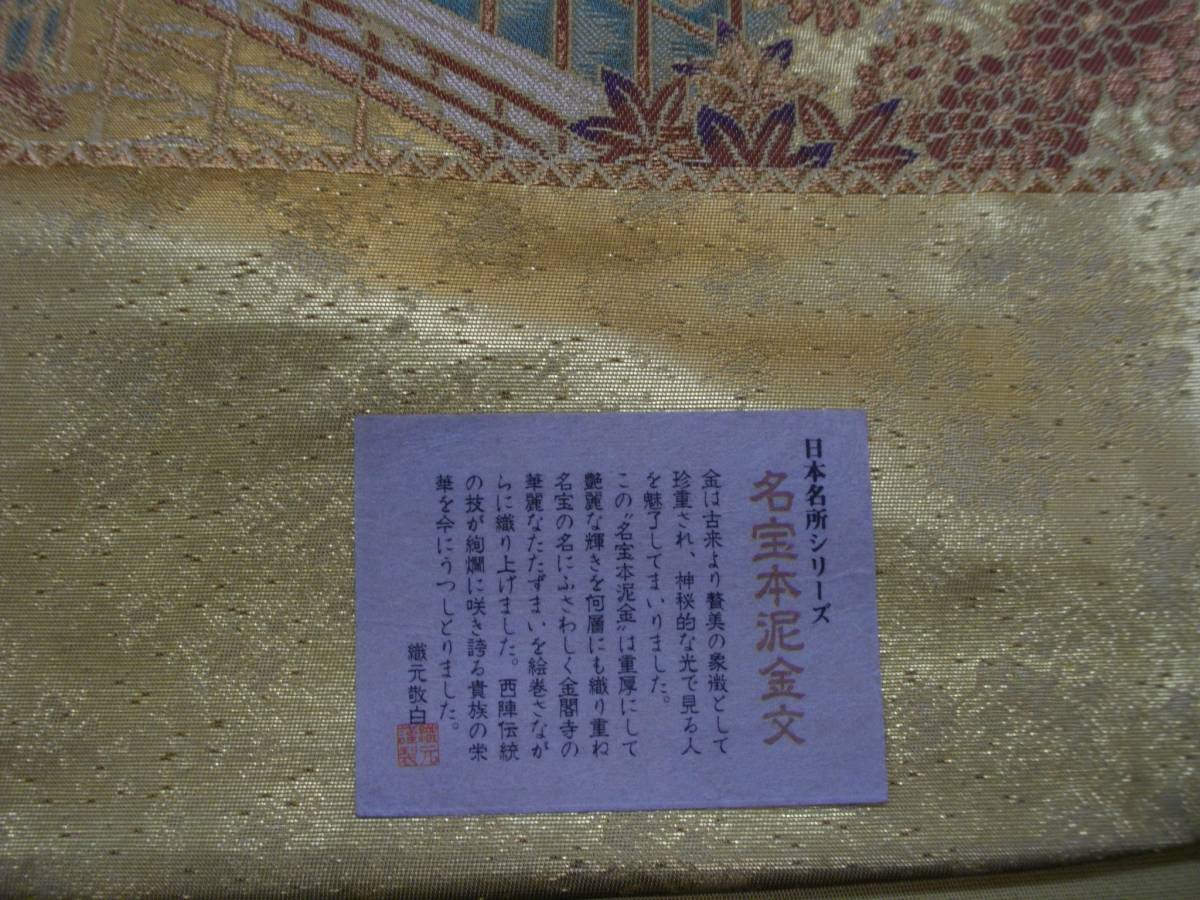 日本名所シリーズ
名宝本泥金文
金は古来より贅美の象徴として
珍重され、神秘的な光で見る人
を魅了してまいりました。
この〝名宝本泥金〟は重厚にして
艶麗な輝きを何層にも織り重ね
名宝の名にふさわしく金閣寺の
華麗なたたずまいを絵巻さなが
らに織り上げました。西陣伝統
の技が絢爛に咲き誇る貴族の栄
華を今にうつしとりました。
織元敬白
織元
謹製